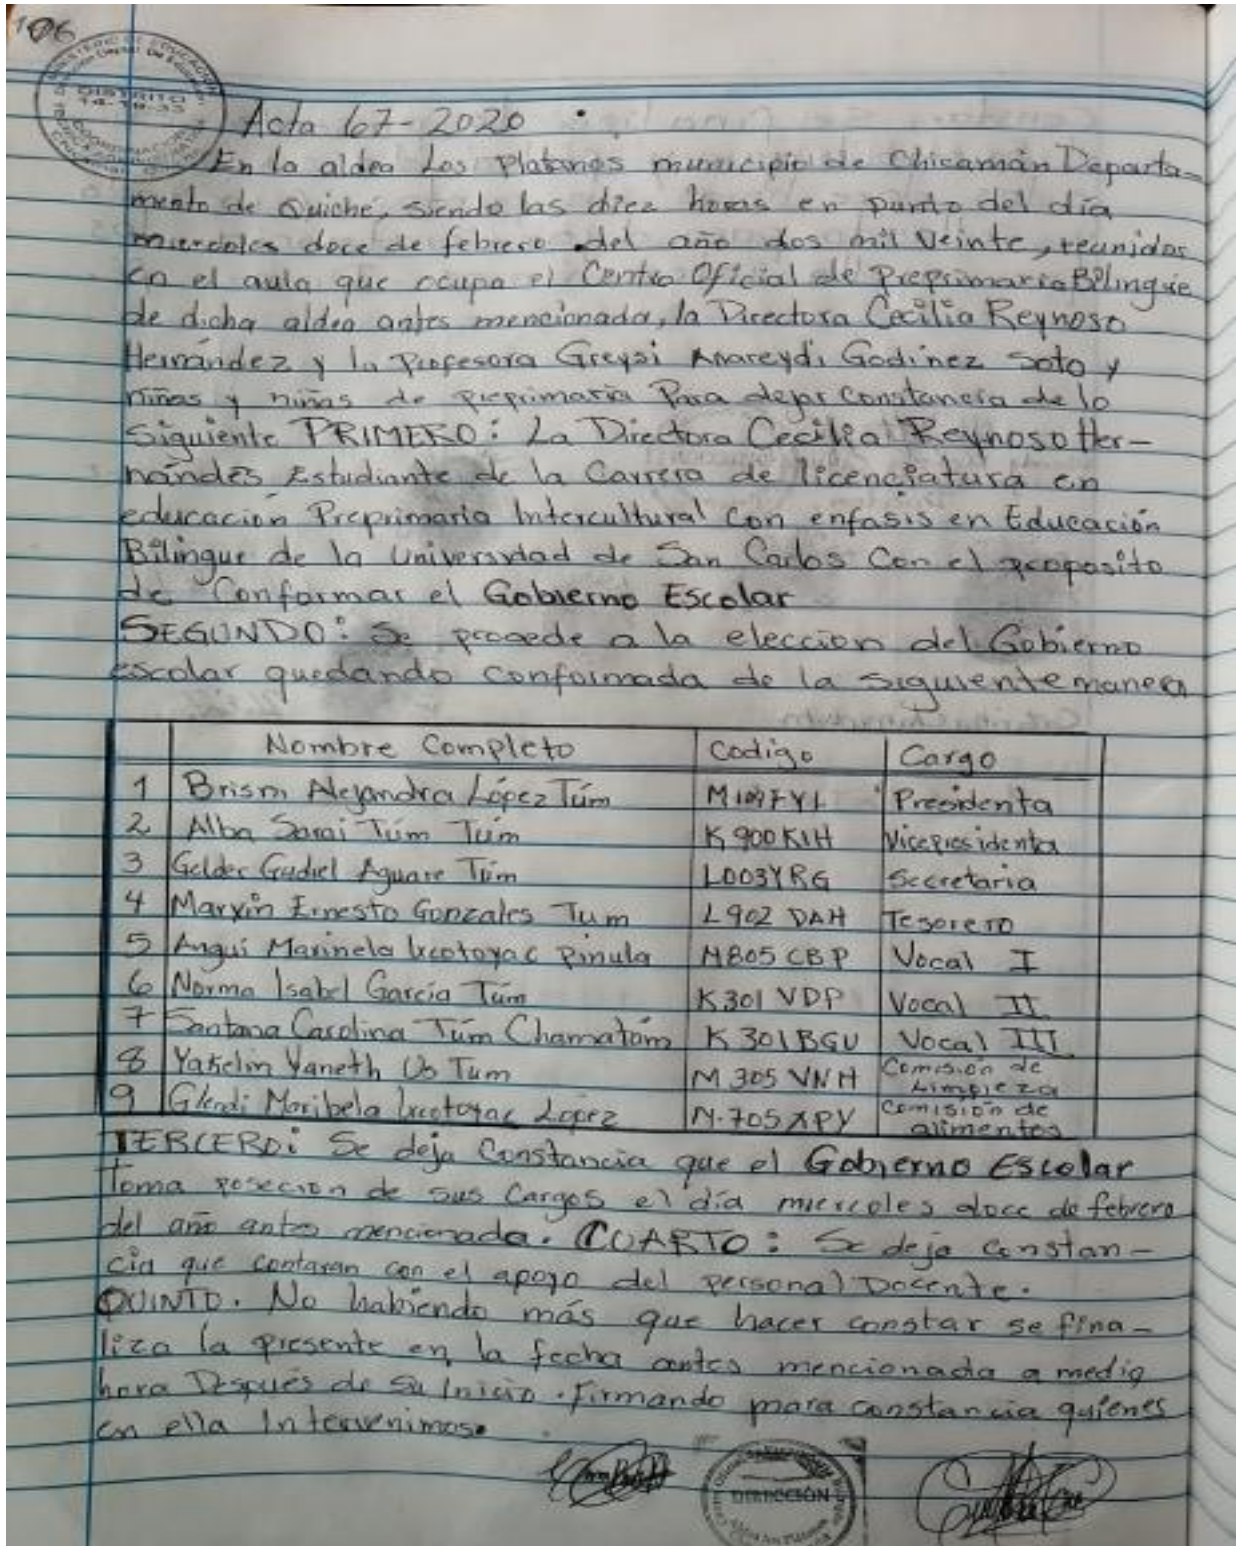 106
MINISTERIO DE EDUCACIÓN
DISTRITO
14-19-35
Acta 67-2020
En la aldea Los Platanos municipio de Chicamán Departa-
mento de Quiché, siendo las diez horas en punto del día
miercoles doce de febrero del año dos mil veinte, reunidos
en el aula que ocupa el Centro Oficial de Preprimaria Bilingüe
de dicha aldea antes mencionada, la Directora Cecilia Reynoso
Hernández y la Profesora Greysi Anareydi Godínez Soto y
niñas y niñas de preprimaria Para dejar Constancia de lo
Siguiente PRIMERO: La Directora Cecilia Reynoso Her-
nándes Estudiante de la Carrera de licenciatura en
educación Preprimaria Intercultural Con enfasis en Educación
Bilingue de la Universidad de San Carlos Con el proposito
de Conformar el Gobierno Escolar
SEGUNDO: Se procede a la elección del Gobierno
escolar quedando conformada de la siguiente manera
Nombre Completo Codigo Cargo
1 Alejandra López Túm Presidenta
2 Alba Sarai Túm Túm K900KIH Vicepresidenta
3 Gelder Gudiel Aguare Túm L003YRG Secretaria
4 Marvin Ernesto Gonzales Tum L902 DAH Tesorero
5 Angui Marinela Ixcotoyac Pinula M805 CBP Vocal I
6 Norma Isabel García Túm K301 VDP Vocal II
7 Santana Carolina Túm Chamatóm K301BGU Vocal III
8 Yakelin Yaneth Us Tum M305 VNH Comisión de Limpieza
9 Glendi Maribela Ixcotoyac Lopez M.705XPY Comisión de alimentos
TERCERO: Se deja Constancia que el Gobierno Escolar
Toma poseción de sus Cargos el día miercoles doce de febrero
del año antes mencionada. CUARTO: Se deja constan-
cia que contaran con el apoyo del personal Docente.
QUINTO. No habiendo más que hacer constar se fina-
liza la presente en la fecha antes mencionada a media
hora Después de su Inicio. firmando para constancia quienes
en ella Intervenimos.
DIRECCIÓN